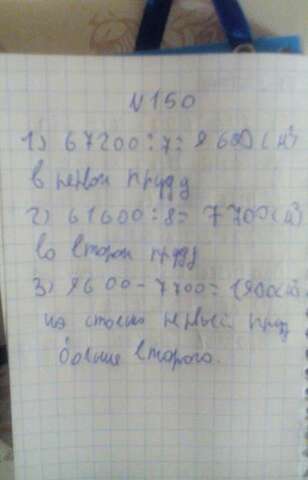 N150
1) 67200:7=9600(м²)
в первом пруду
2) 61600:8= 7700(м²)
во втором пруду
3) 9600-7700=1900(м²)
на столько первый пруд
больше второго.